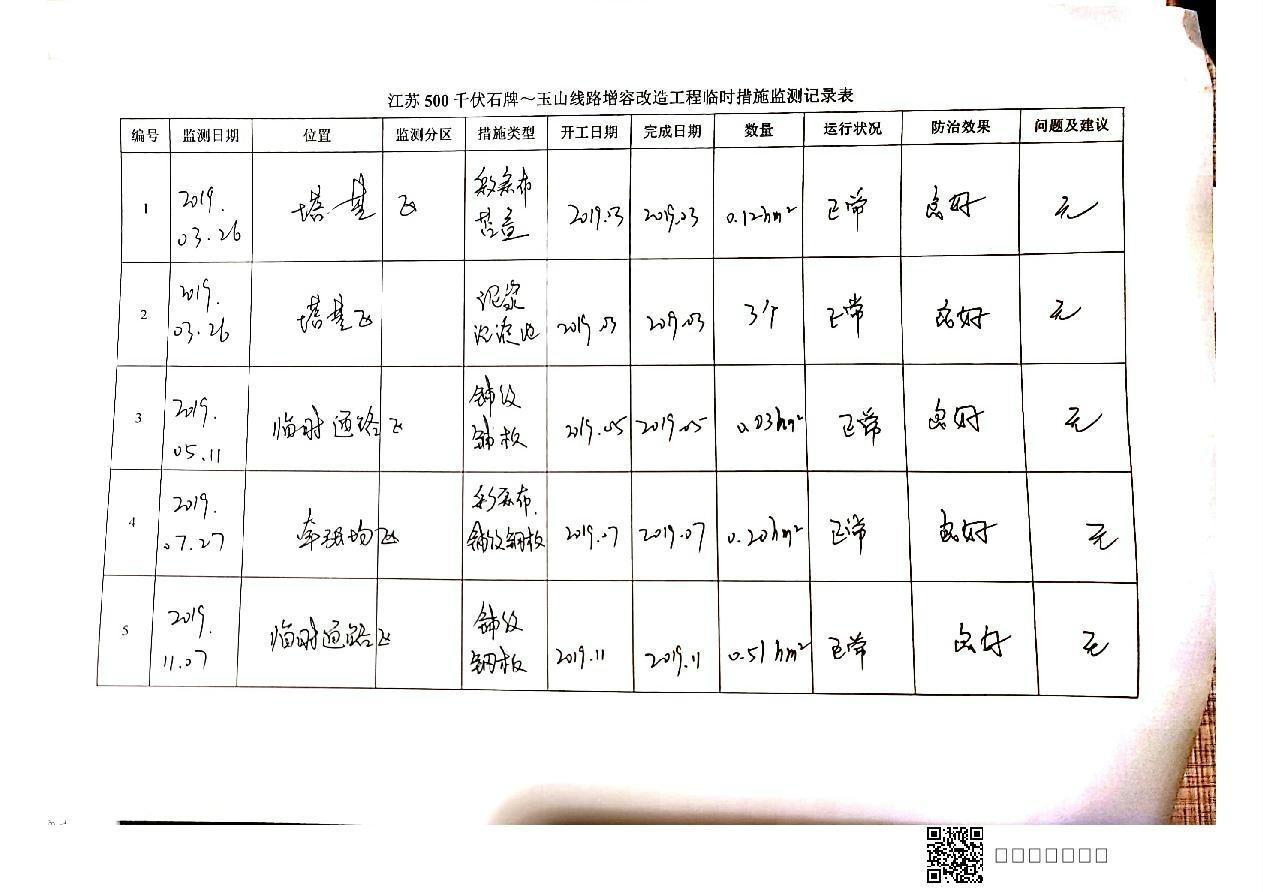 江苏500千伏石牌～玉山线路增容改造工程临时措施监测记录表
编号 监测日期 位置 监测分区 措施类型 开工日期 完成日期 数量 运行状况 防治效果 问题及建议
1 2019.03.26 塔基区 彩条布苫盖 2019.03 2019.03 0.12hm² 正常 良好 无
2 2019.03.26 塔基区 泥浆沉淀池 2019.03 2019.03 3个 正常 良好 无
3 2019.05.11 临时道路区 铺设钢板 2019.05 2019.05 0.03hm² 正常 良好 无
4 2019.07.27 牵张场区 彩条布、铺设钢板 2019.07 2019.07 0.20hm² 正常 良好 无
5 2019.11.07 临时道路区 铺设钢板 2019.11 2019.11 0.51hm² 正常 良好 无